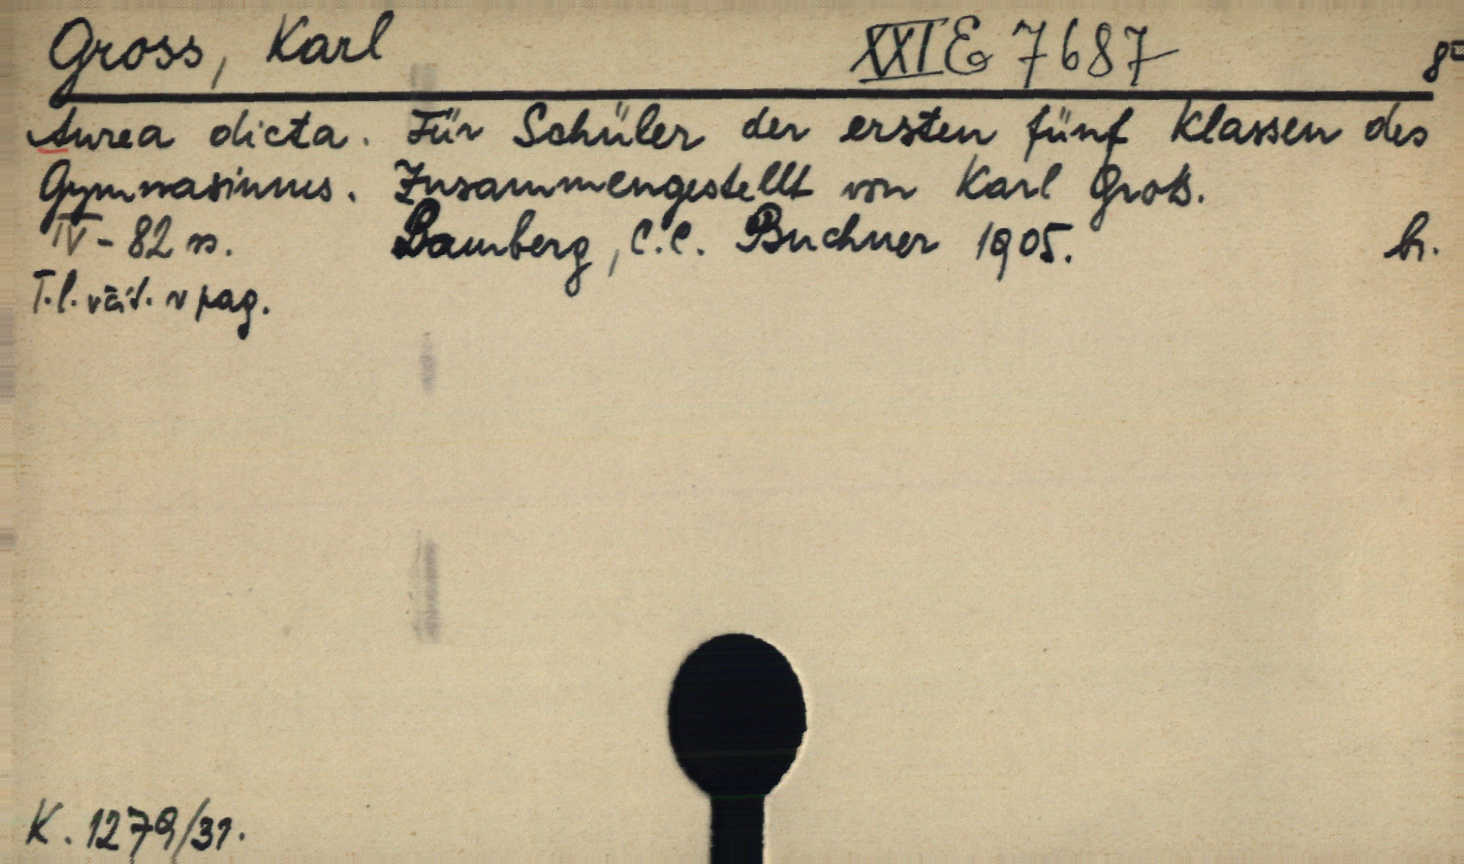 Gross, Karl XXI E 7687 8°
Aurea dicta. Für Schüler der ersten fünf Klassen des
Gymnasiums. Zusammengestellt von Karl Groß.
IV - 82 s. Bamberg, C.C. Buchner 1905. br.
T.l. včít. v pag.
K. 1279/31.